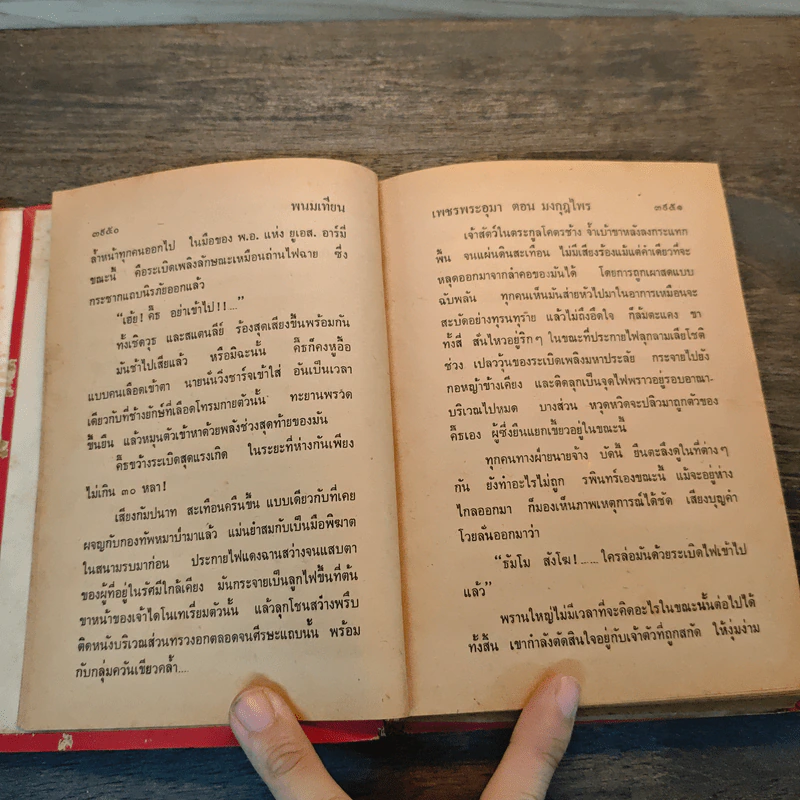 ๓๙๕๐
พนมเทียน
ล้ำหน้าทุกคนออกไป ในมือของ พ.อ. แห่ง ยูเอส. อาร์มี่
ขณะนี้ คือระเบิดเพลิงลักษณะเหมือนถ่านไฟฉาย ซึ่ง
กระชากแถบนิรภัยออกแล้ว
“เฮ้ย! คี๊ธ อย่าเข้าไป!!....”
ทั้งเชิดวุธ และสแตนลีย์ ร้องสุดเสียงขึ้นพร้อมกัน
มันช้าไปเสียแล้ว หรือมิฉะนั้น คี๊ธก็คงหูอื้อ
แบบคนเลือดเข้าตา นายนั่นวิ่งชาร์จเข้าใส่ อันเป็นเวลา
เดียวกับที่ช้างยักษ์ที่เลือดโทรมกายตัวนั้น ทะยานพรวด
ขึ้นยืน แล้วหมุนตัวเข้าหาด้วยพลังช่วงสุดท้ายของมัน
คี๊ธขว้างระเบิดสุดแรงเกิด ในระยะที่ห่างกันเพียง
ไม่เกิน ๓๐ หลา!
เสียงกัมปนาท สะเทือนครืนขึ้น แบบเดียวกับที่เคย
ผจญกับกองทัพหมาป่ามาแล้ว แม่นยำสมกับเป็นมือพิฆาต
ในสนามรบมาก่อน ประกายไฟแดงฉานสว่างจนแสบตา
ของผู้ที่อยู่ในรัศมีใกล้เคียง มันกระจายเป็นลูกไฟขึ้นที่ต้น
ขาหน้าของเจ้าไดโนเทเรี่ยมตัวนั้น แล้วลุกโชนสว่างพรึบ
ติดหนังบริเวณส่วนทรวงอกตลอดจนศีรษะแถบนั้น พร้อม
กับกลุ่มควันเขียวคล้ำ....
เพชรพระอุมา ตอน มงกุฎไพร
๓๙๕๑
เจ้าสัตว์ในตระกูลโคตรช้าง จ้ำเบ้าขาหลังลงกระแทก
พื้น จนแผ่นดินสะเทือน ไม่มีเสียงร้องแม้แต่คำเดียวที่จะ
หลุดออกมาจากลำคอของมันได้ โดยการถูกเผาสดแบบ
ฉับพลัน ทุกคนเห็นมันส่ายหัวไปมาในอาการเหมือนจะ
สะบัดอย่างทุรนทุราย แล้วไม่ถึงอึดใจ ก็ล้มตะแคง ขา
ทั้งสี่ สั่นไหวอยู่ริกๆ ในขณะที่ประกายไฟลุกลามเลียโชติ
ช่วง เปลววุ้นของระเบิดเพลิงมหาประลัย กระจายไปยัง
กอหญ้าข้างเคียง และติดลุกเป็นจุดไฟพราวอยู่รอบอาณา-
บริเวณไปหมด บางส่วน หวุดหวิดจะปลิวมาถูกตัวของ
คี๊ธเอง ผู้ซึ่งยืนแยกเขี้ยวอยู่ในขณะนี้
ทุกคนทางฝ่ายนายจ้าง บัดนี้ ยืนตะลึงดูในที่ต่างๆ
กัน ยังทำอะไรไม่ถูก รพินทร์เองขณะนี้ แม้จะอยู่ห่าง
ไกลออกมา ก็มองเห็นภาพเหตุการณ์ได้ชัด เสียงบุญคำ
โวยลั่นออกมาว่า
“ธัมโม สังโฆ!......ใครล่อมันด้วยระเบิดไฟเข้าไป
แล้ว”
พรานใหญ่ไม่มีเวลาที่จะคิดอะไรในขณะนั้นต่อไปได้
ทั้งสิ้น เขากำลังตัดสินใจอยู่กับเจ้าตัวที่ถูกสกัด ให้งุ่มง่าม